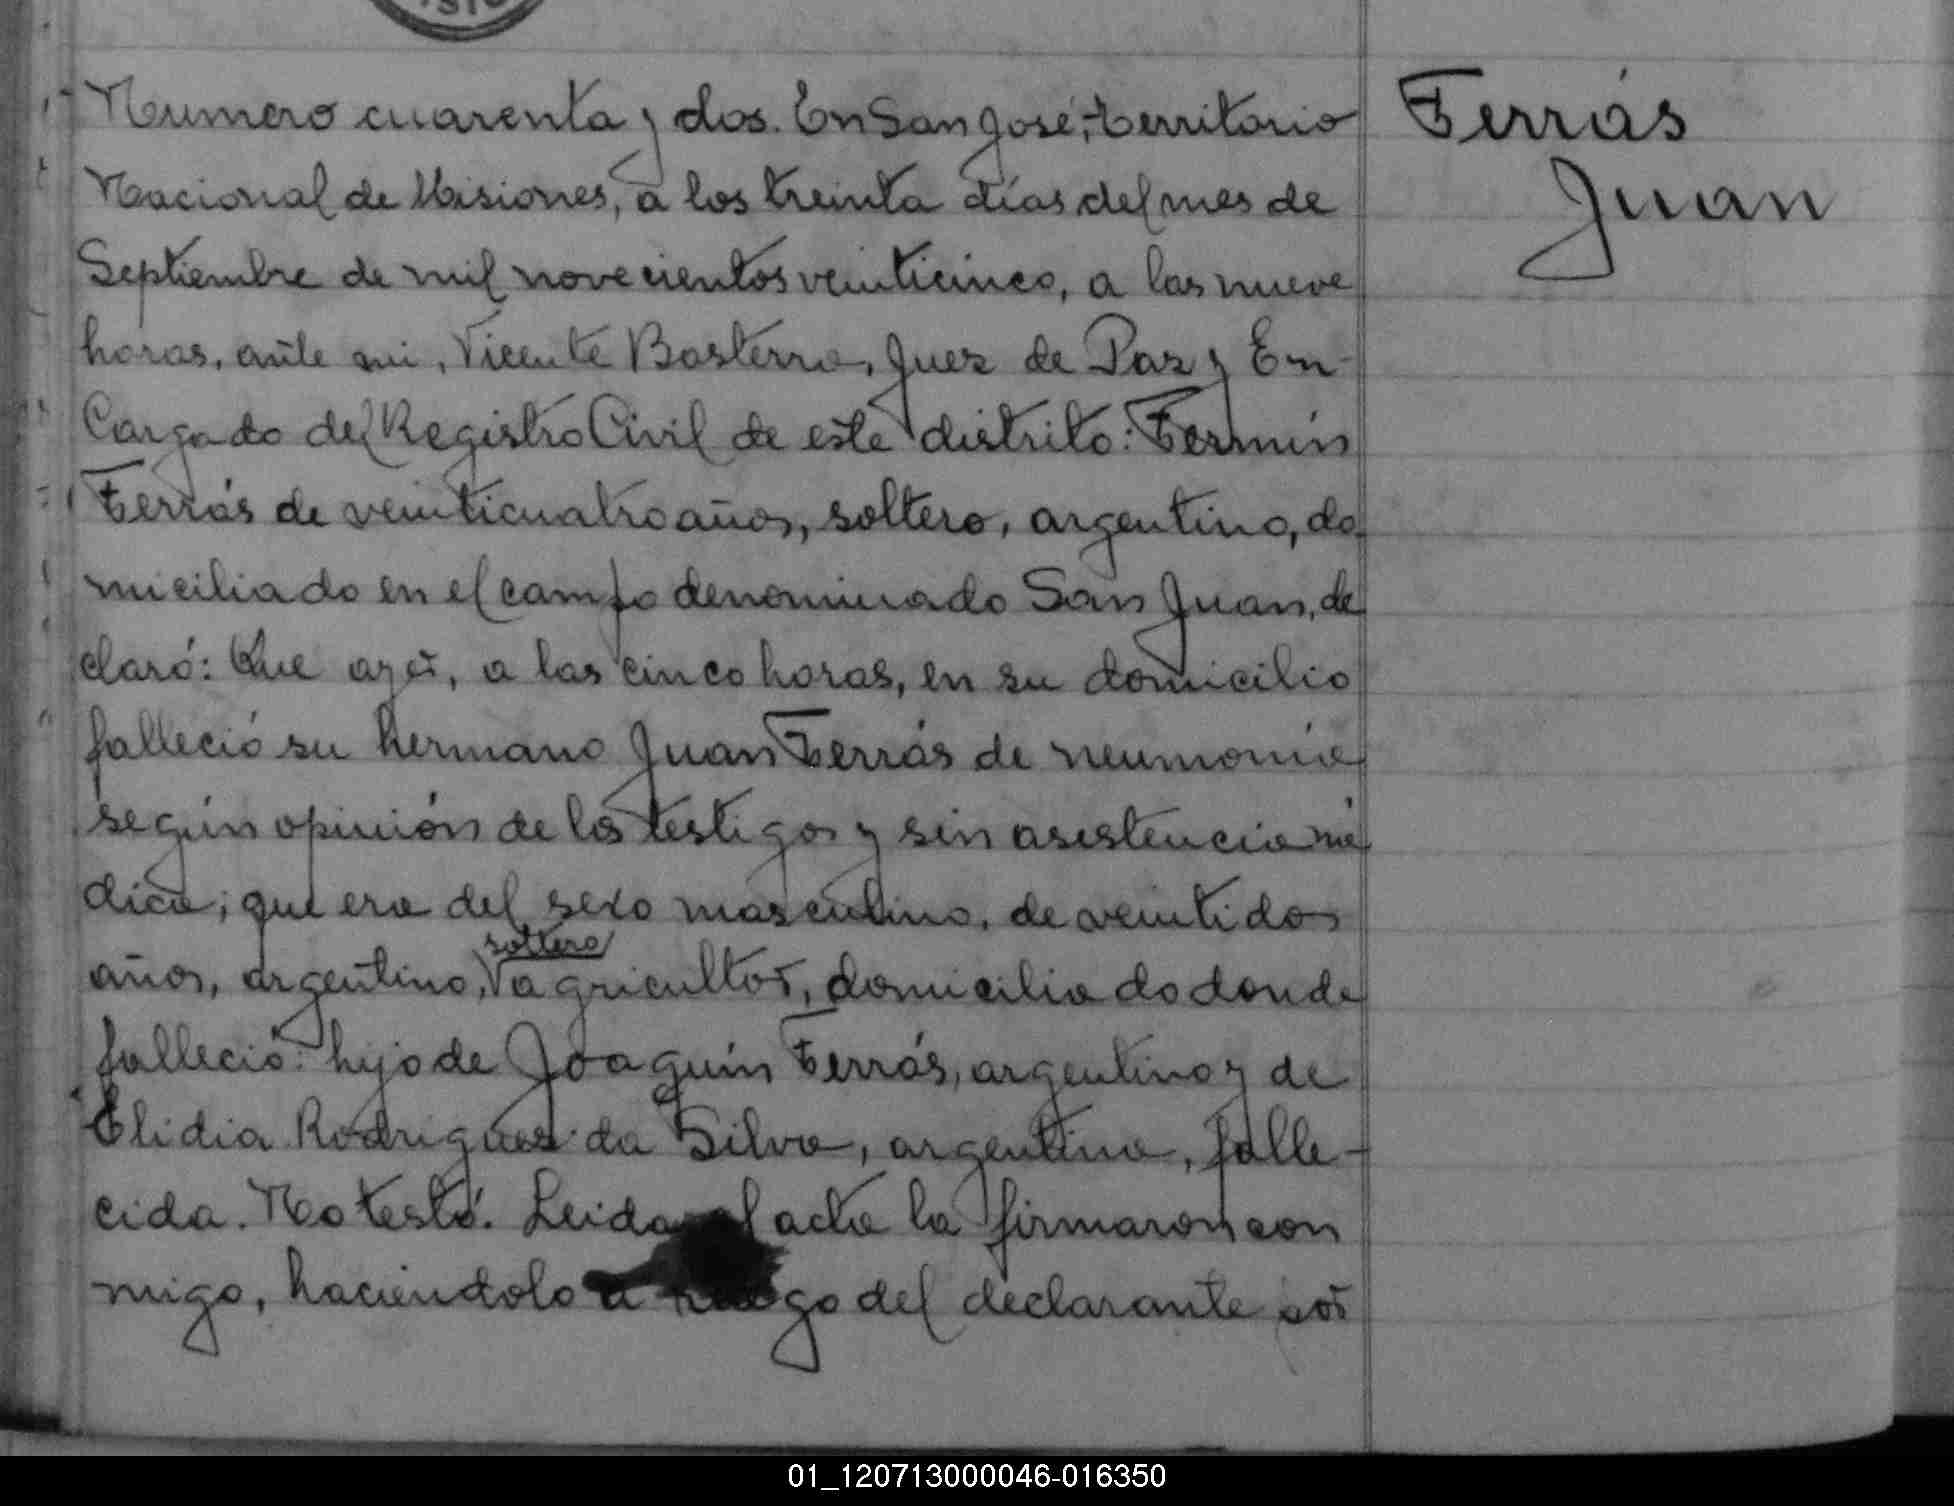 Numero cuarenta y dos. En San José, territorio
Nacional de Misiones, a los treinta días del mes de
Septiembre de mil novecientos veinticinco, a las nueve
horas, ante mi, Vicente Basterra, Juez de Paz y En-
cargado del Registro Civil de este distrito: Fermín
Ferrás de veinticuatro años, soltero, argentino, do-
miciliado en el campo denominado San Juan, de
claró: Que ayer, a las cinco horas, en su domicilio
falleció su hermano Juan Ferrás de neumonía
según opinión de los testigos y sin asistencia mé
dica; que era del sexo masculino, de veintidos
soltero
años, argentino, agricultor, domiciliado donde
falleció: hijo de Joaquín Ferrás, argentino y de
Elidia Rodriguez da Silva, argentina, falle-
cida. No testó. Leida el acta la firmaron con
migo, haciendolo a ruego del declarante por
Ferrás
Juan
01_120713000046-016350